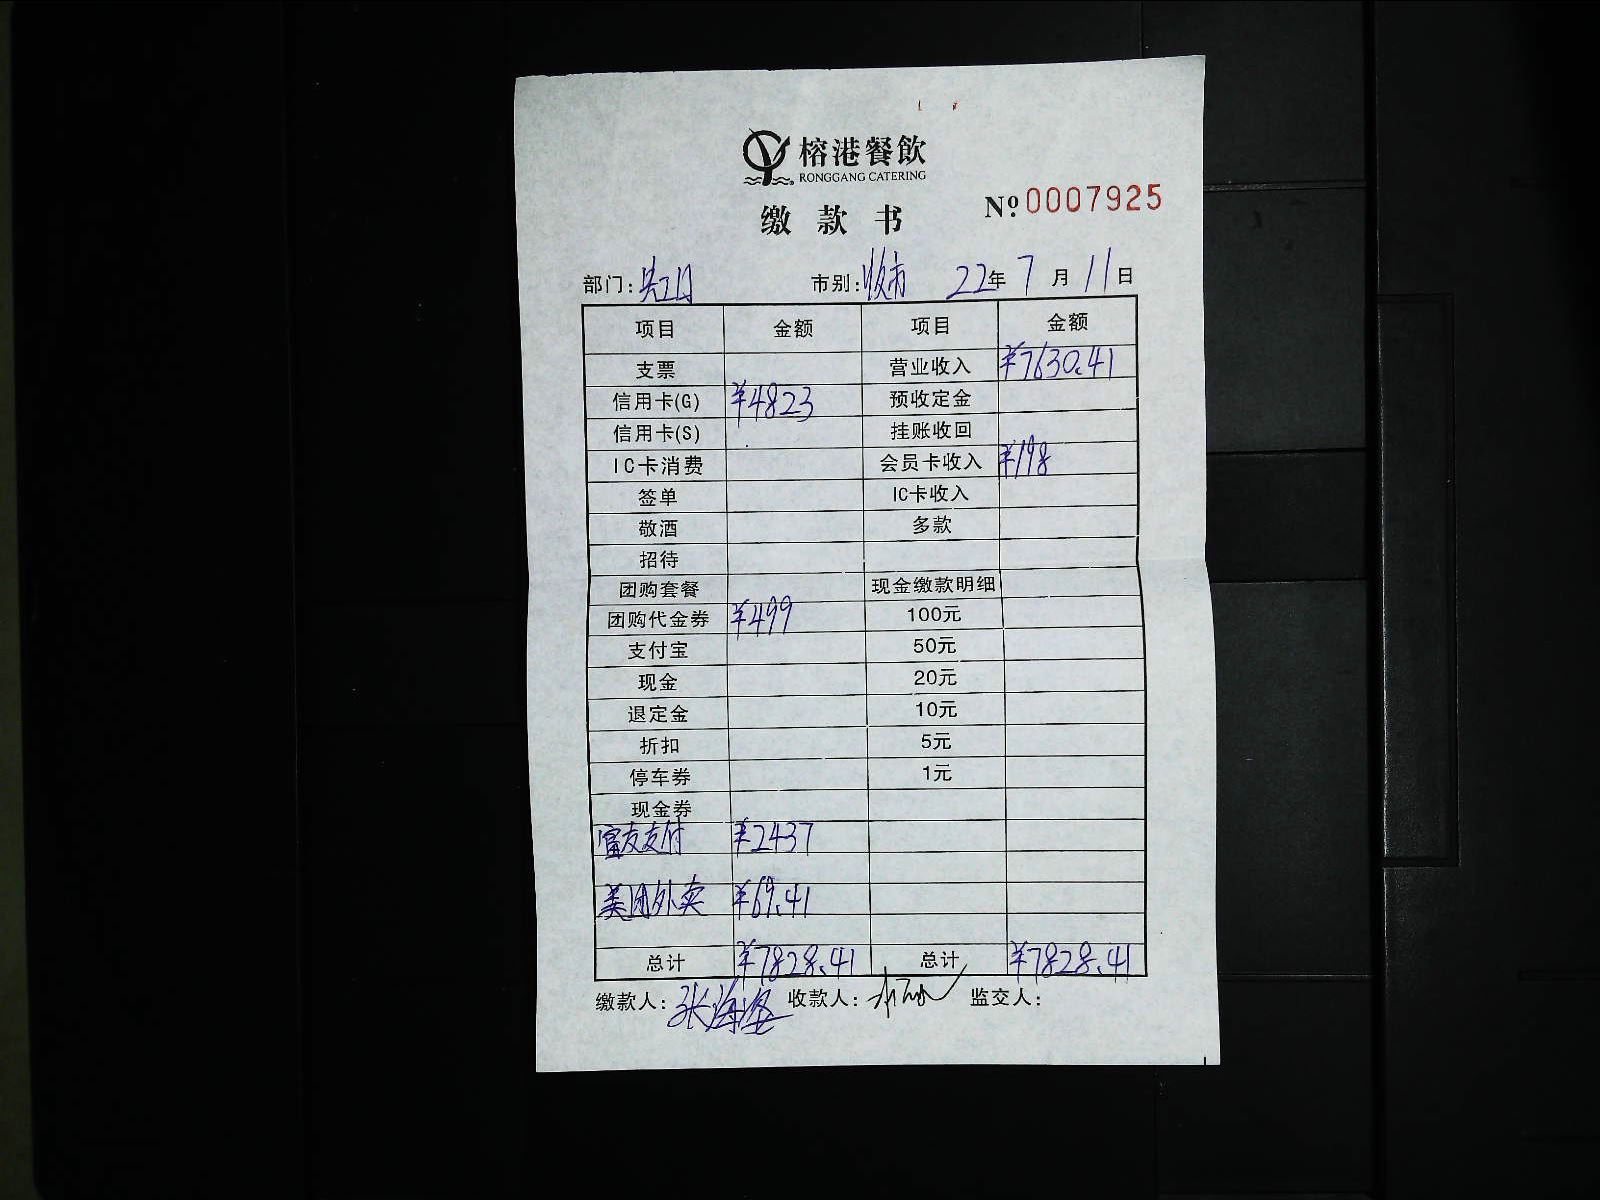 榕港餐飲
RONGGANG CATERING
缴款书
Nº 0007925
部门: 市别: 收市 22年 7月 11日
项目 金额 项目 金额
支票 营业收入 ¥7630.41
信用卡(G) ¥4823 预收定金
信用卡(S) 挂账收回
IC卡消费 会员卡收入 ¥198
签单 IC卡收入
敬酒 多款
招待
团购套餐 现金缴款明细
团购代金券 ¥499 100元
支付宝 50元
现金 20元
退定金 10元
折扣 5元
停车券 1元
现金券
富友支付 ¥2437
美团外卖 ¥69.41
总计 ¥7828.41 总计 ¥7828.41
缴款人: 张海 收款人: 监交人: